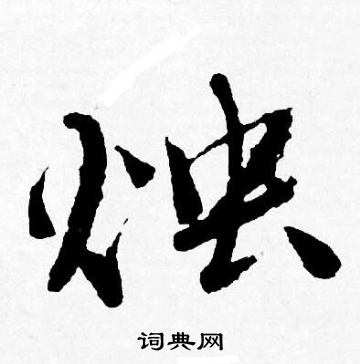 烛
词典网